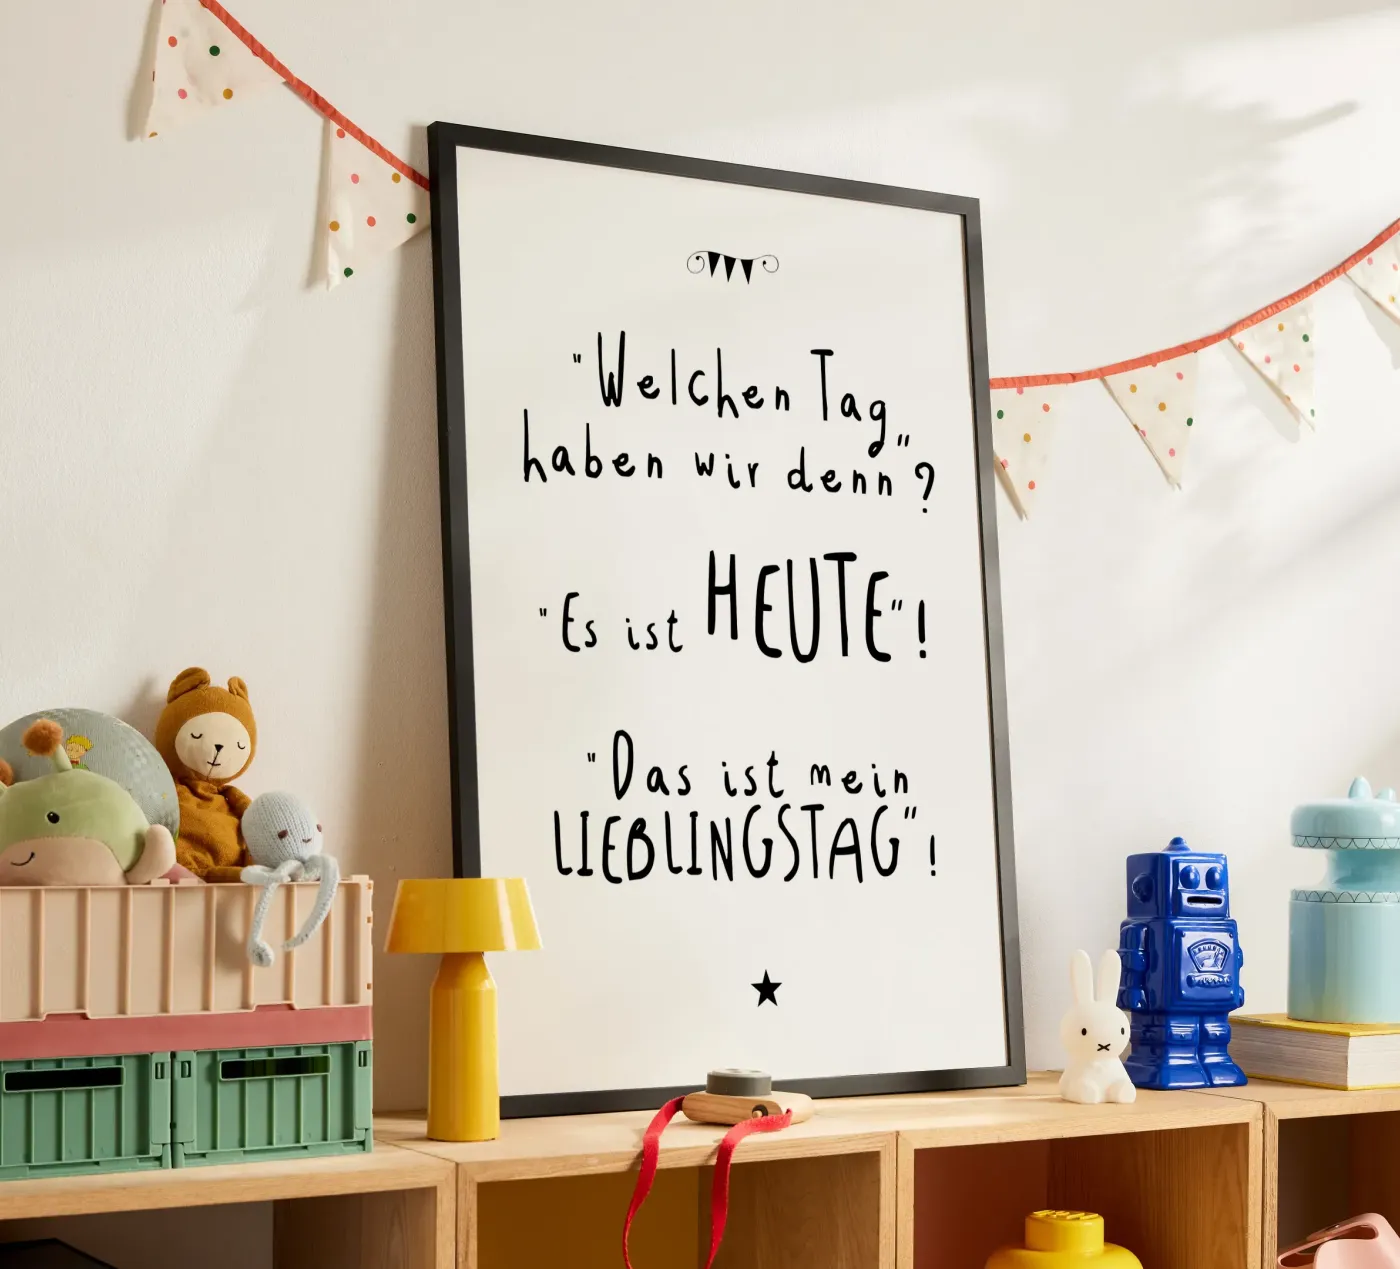 "Welchen Tag
haben wir denn"?
"Es ist HEUTE"!
"Das ist mein
LIEBLINGSTAG"!